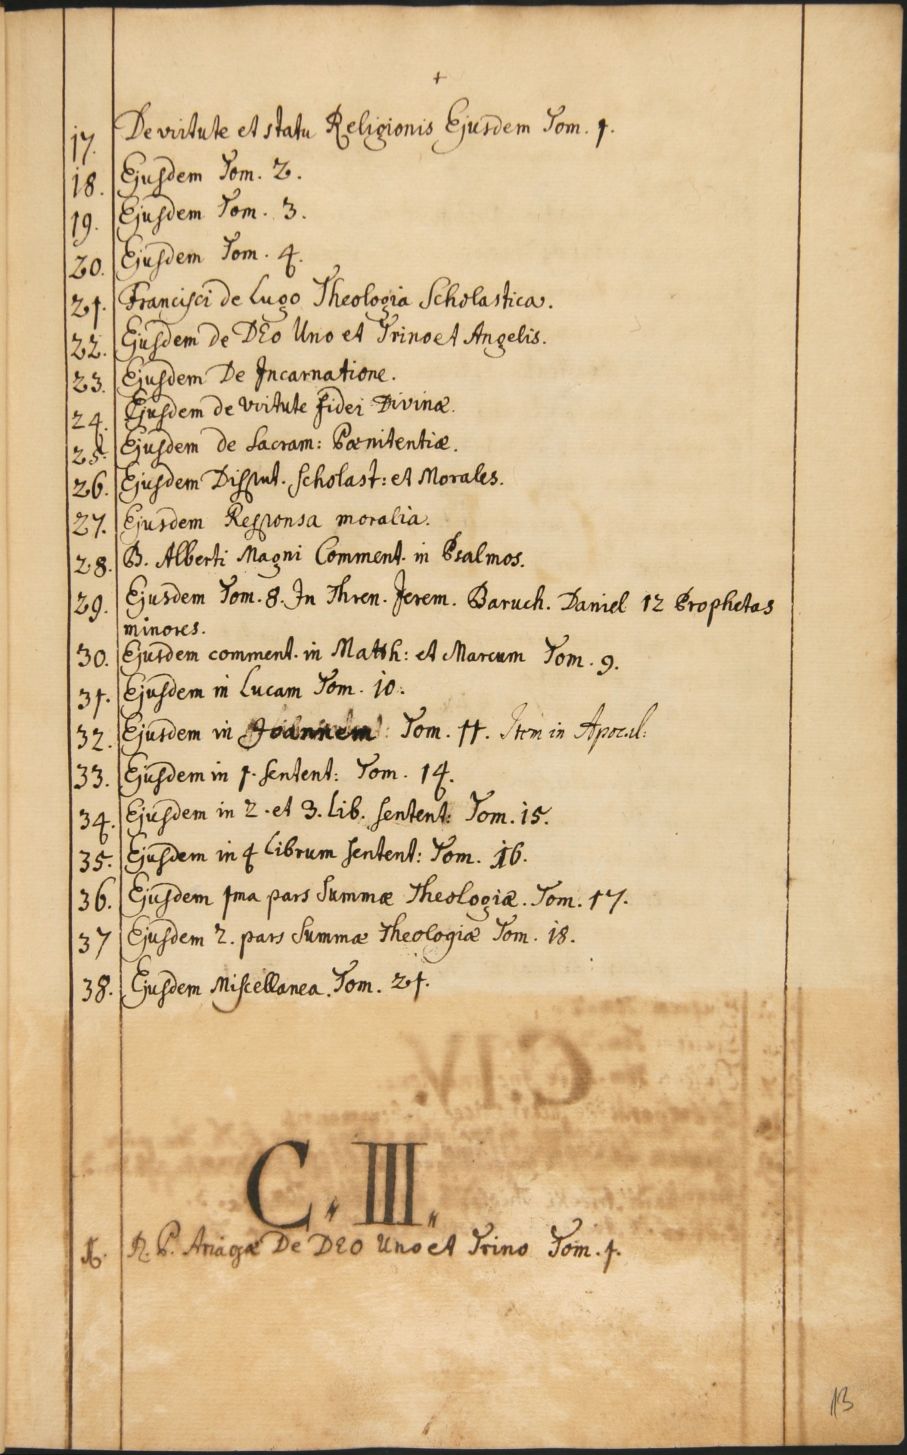 +
17. De virtute et statu Religionis Ejusdem Tom. 1.
18. Ejusdem Tom. 2.
19. Ejusdem Tom. 3.
20. Ejusdem Tom. 4.
21. Francisci de Lugo Theologia Scholastica.
22. Ejusdem de DEo Uno et Trino et Angelis.
23. Ejusdem De Incarnatione.
24. Ejusdem de virtute fidei Divinæ.
25. Ejusdem de Sacram: Pœnitentiæ.
26. Ejusdem Disput. Scholast: et Morales.
27. Ejusdem Responsa moralia.
28. B. Alberti Magni Comment. in Psalmos.
29. Ejusdem Tom. 8. In Thren. Jerem. Baruch. Daniel 12 Prophetas
minores.
30. Ejusdem comment. in Matth: et Marcum Tom. 9.
31. Ejusdem in Lucam Tom. 10.
32. Ejusdem in Joannem Tom. 11. Item in Apocal:
33. Ejusdem in 1. Sentent: Tom. 14.
34. Ejusdem in 2. et 3. Lib. Sentent: Tom. 15.
35. Ejusdem in 4 Librum Sentent: Tom. 16.
36. Ejusdem 1ma pars Summæ Theologiæ. Tom. 17.
37 Ejusdem 2. pars Summæ Theologiæ Tom. 18.
38. Ejusdem Miscellanea. Tom. 21.
C. III.
1. R. P. Ariagæ De DEO Uno et Trino Tom. 1.
13